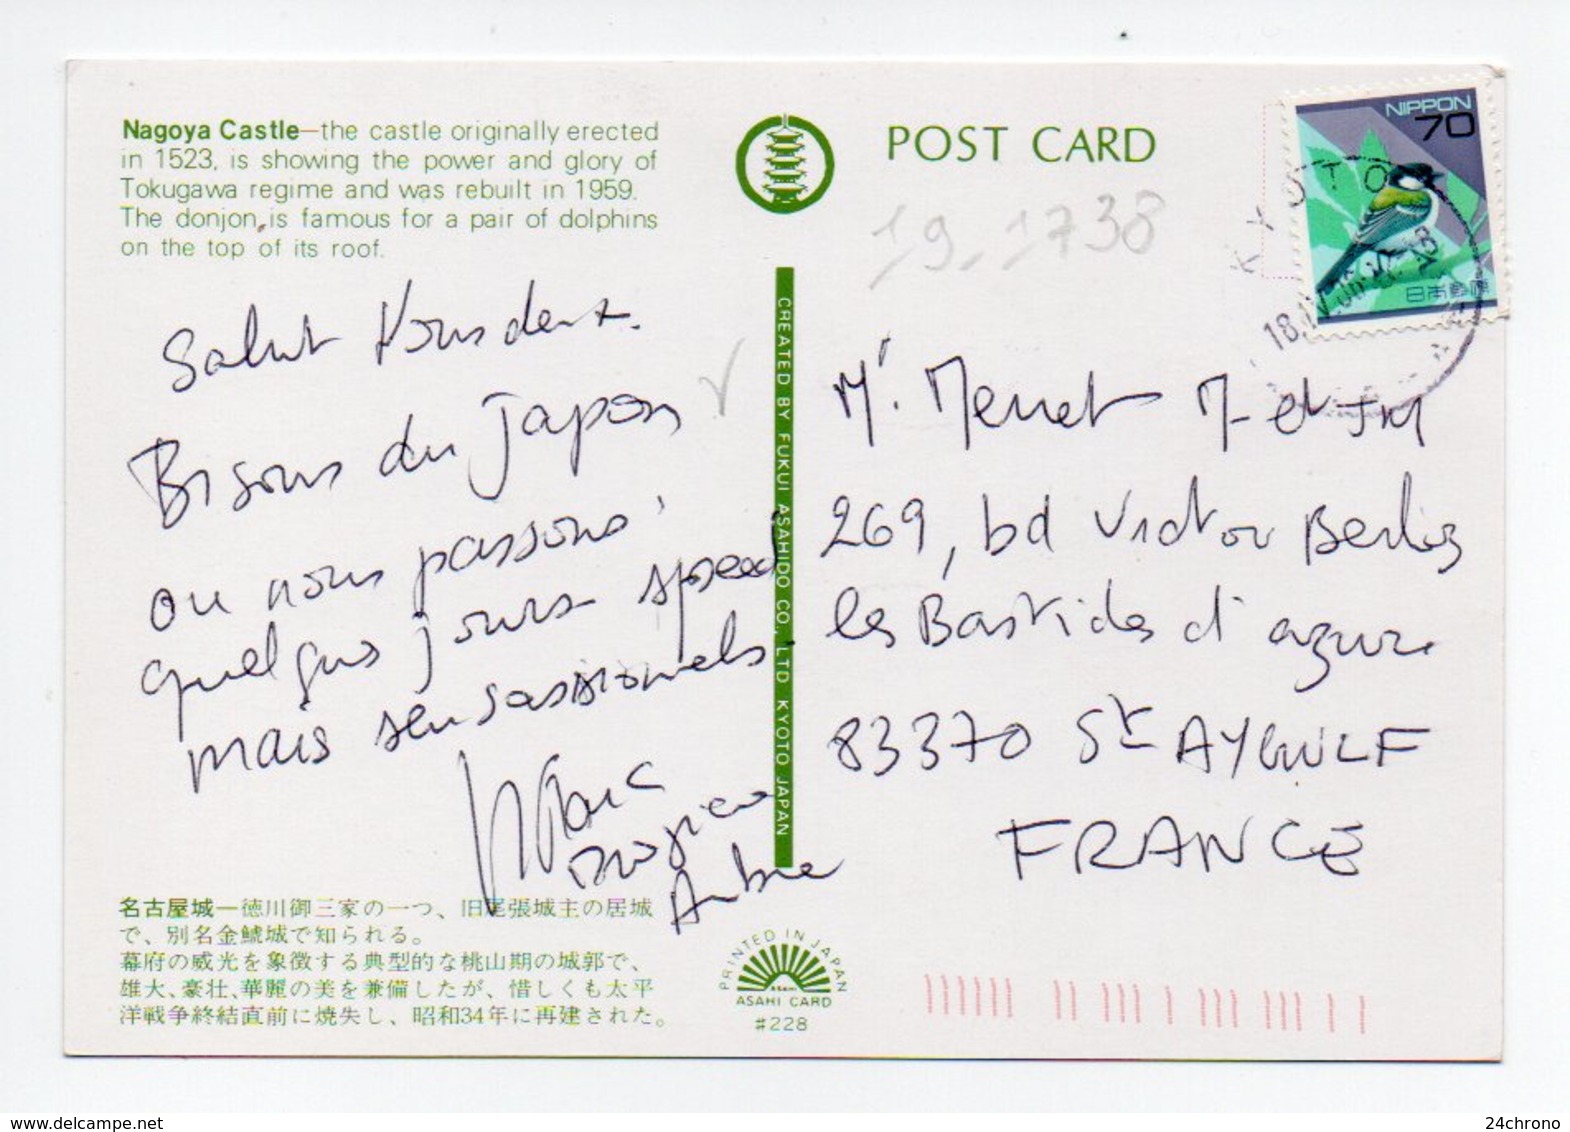 Nagoya Castle—the castle originally erected
in 1523, is showing the power and glory of
Tokugawa regime and was rebuilt in 1959.
The donjon, is famous for a pair of dolphins
on the top of its roof.
POST CARD
19_1738
NIPPON
70
日本郵便
KYOTO
18
Salut Vous deux.
Bisous du Japon
ou nous passons
quelques jours speed
mais sensassionnels
Marc
Aubre
CREATED BY FUKUI ASAHIDO CO., LTD KYOTO JAPAN
Mr. Merret M et JM
269, bd Victor Berlioz
les Bastides d'azur
83370 St AYGULF
FRANCE
名古屋城—徳川御三家の一つ、旧尾張城主の居城
で、別名金鯱城で知られる。
幕府の威光を象徴する典型的な桃山期の城郭で、
雄大、豪壮、華麗の美を兼備したが、惜しくも太平
洋戦争終結直前に焼失し、昭和34年に再建された。
PRINTED IN JAPAN
ASAHI CARD
#228
www.delcampe.net
24chrono